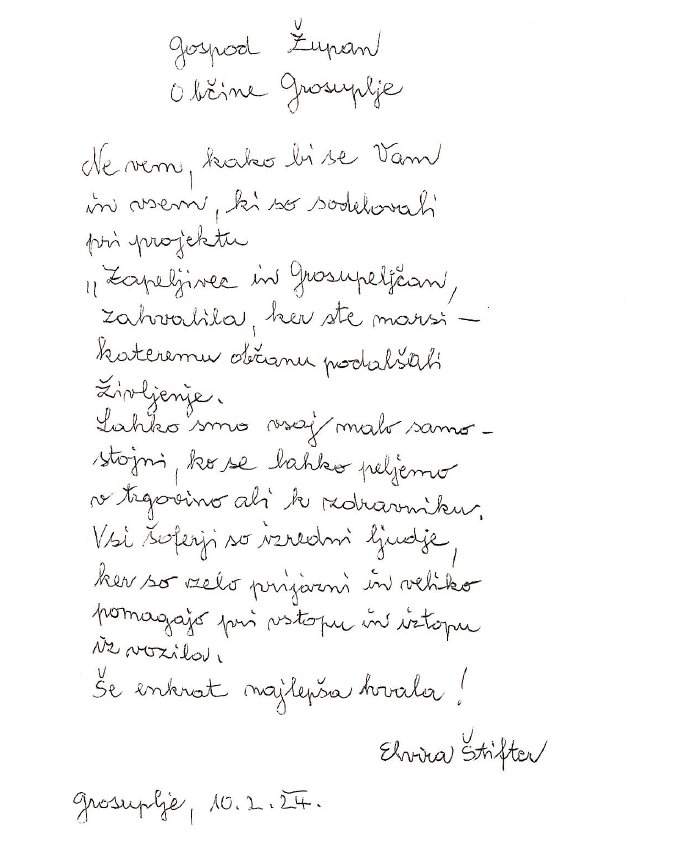 Gospod Župan
Občine Grosuplje
Ne vem, kako bi se Vam
in vsem, ki so sodelovali
pri projektu
"Zapeljivec in Grosupeljčan,
zahvalila, ker ste marsi -
kateremu občanu podalšali
življenje.
Lahko smo vsaj malo samo -
stojni, ko se lahko peljemo
v trgovino ali k zdravniku.
Vsi šoferji so izredni ljudje,
ker so zelo prijazni in veliko
pomagajo pri vstopu in iztopu
iz vozila.
Še enkrat najlepša hvala!
Elvira Štifter
Grosuplje, 10.2.24.